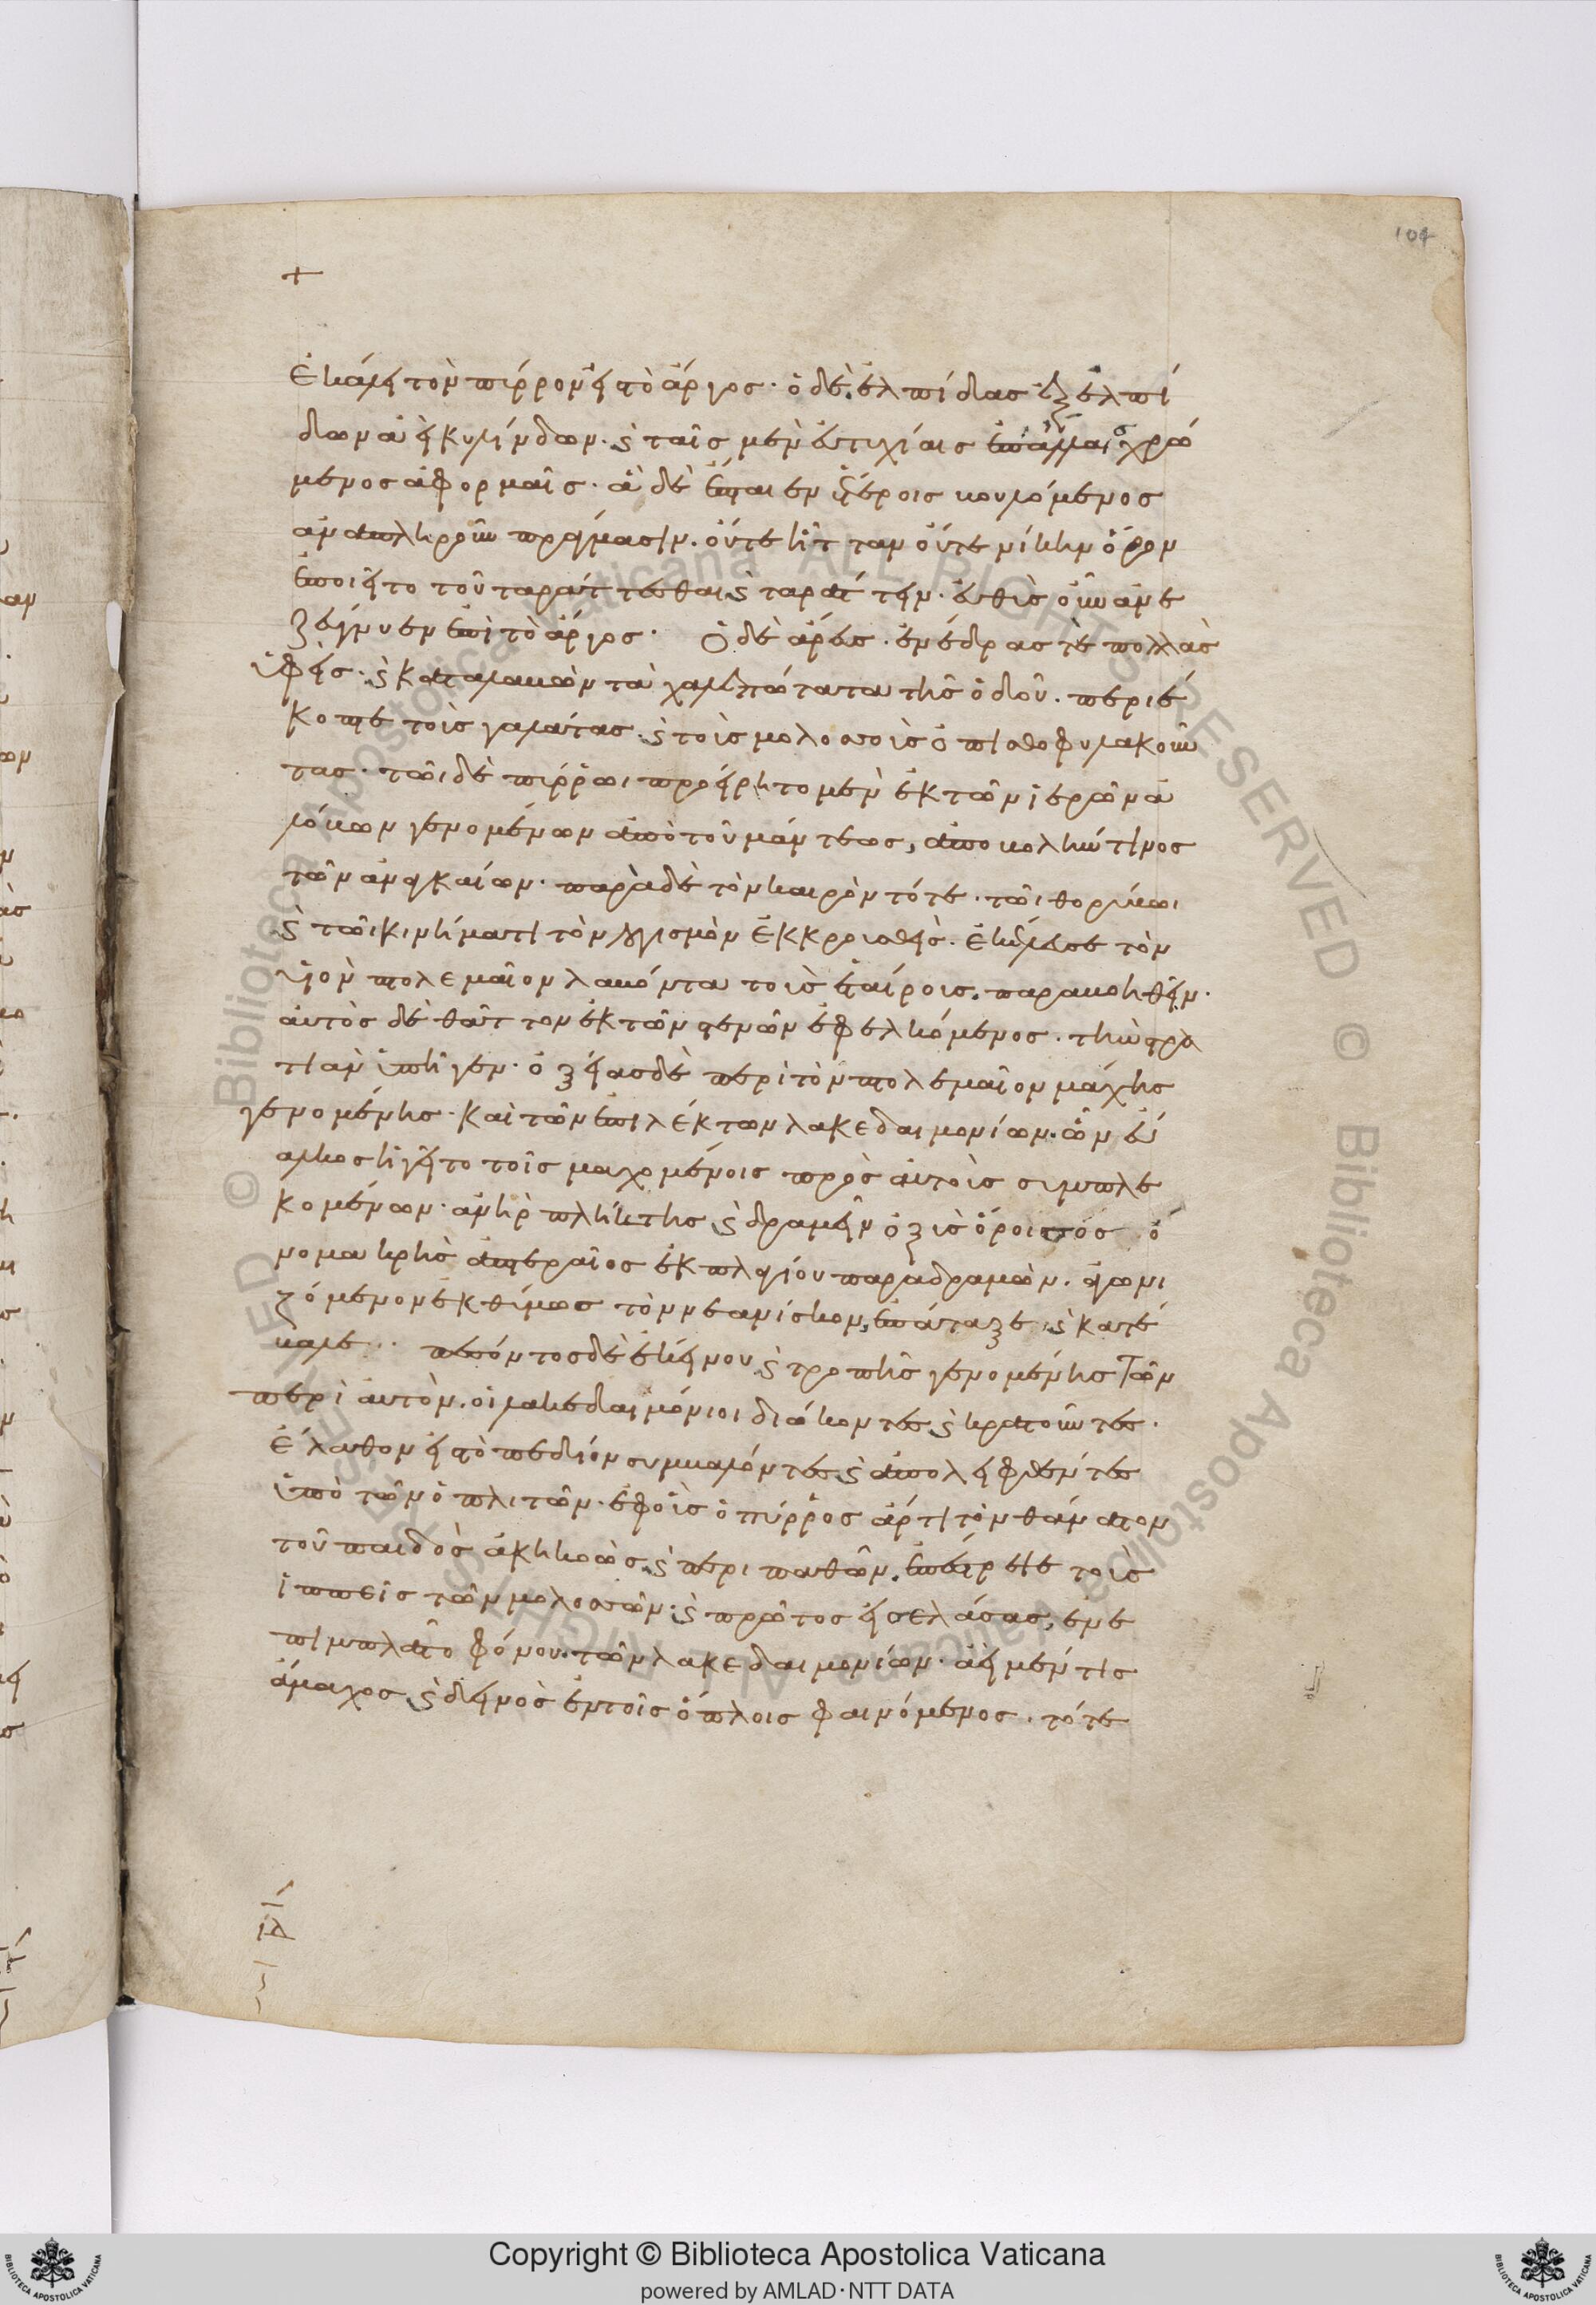 104
+
ἐκάλει τὸν πύρρον εἰς τὸ ἄργος· ὁ δὲ ἐλπίδας ἐξ ἐλπί
δων ἀεὶ κυλίνδων· καὶ ταῖς μὲν εὐτυχίαις ἐπ' ἄλλας χρώ
μενος ἀφορμαῖς· ἃ δὲ ἔπταιεν ἑτέροις βουλόμενος
ἀναπληροῦν πράγμασιν· οὔτε ἧτταν οὔτε νίκην ὅρον
ἐποιεῖτο τοῦ ταράττεσθαι καὶ ταράττειν· εὐθὺς οὖν ἀνε
ζεύγνυεν ἐπὶ τὸ ἄργος· ὁ δὲ ἀρεὺς· ἐνέδρας τὲ πολλὰς
ὑφεὶς· καὶ καταλαβὼν τὰ χαλεπώτατα τῆς ὁδοῦ· περιέ
κοπτε τοὺς γαλάτας· καὶ τοὺς μολοσσοὺς ὀπισθοφυλακοῦν
τας· τῶι δὲ πύρρωι προείρητο μὲν ἐκ τῶν ἱερῶν ἀ
λόβων γενομένων ἀπὸ τοῦ μάντεως, ἀποβολή τινος
τῶν ἀναγκαίων· παρὰ δὲ τὸν καιρὸν τότε· τῶι θορύβωι
καὶ τῶι κινήματι τὸν λογισμὸν ἐκκρουσθεὶς· ἐκέλευσε τὸν
υἱὸν πτολεμαῖον λαβόντα τοὺς ἑταίρους παραβοηθεῖν·
αὐτὸς δὲ θᾶττον ἐκ τῶν στενῶν ἐφελκόμενος· τὴν στρα
τιὰν ὑπῆγεν· ὀξείας δὲ περὶ τὸν πτολεμαῖον μάχης
γενομένης· καὶ τῶν ἐπιλέκτων λακεδαιμονίων· ὧν εὔ
αλκος ἡγεῖτο τοῖς μαχομένοις πρὸς αὐτοὺς συμπλε
κομένων· ἀνὴρ πλήκτης καὶ δραμεῖν ὀξὺς ὄροισσος ὄ
νομα κρὴς ἀπτεραῖος ἐκ πλαγίου παραδραμὼν· ἀγωνι
ζόμενον ἐκθύμως τὸν νεανίσκον, ἐπάταξε καὶ κατέ
βαλε· πεσόντος δὲ ἐκείνου καὶ τροπῆς γενομένης τῶν
περὶ αὐτὸν· οἱ λακεδαιμόνιοι διώκοντες καὶ κρατοῦντες·
ἔλαθον εἰς τὸ πεδίον συμβαλόντες καὶ ἀπολειφθέντες
ὑπὸ τῶν ὁπλιτῶν· ἐφ' οὓς ὁ πύρρος ἄρτι τὸν θάνατον
τοῦ παιδὸς ἀκηκοὼς καὶ περιπαθῶν· ἐπέστρεψε τοὺς
ἱππεῖς τῶν μολοσσῶν· καὶ πρῶτος εἰσελάσας, ἐνε
πίμπλατο φόνου· τῶν λακεδαιμονίων· ἀεὶ μέν τις
ἄμαχος καὶ δεινὸς ἐν τοῖς ὅπλοις φαινόμενος· τότε
Copyright © Biblioteca Apostolica Vaticana
powered by AMLAD·NTT DATA